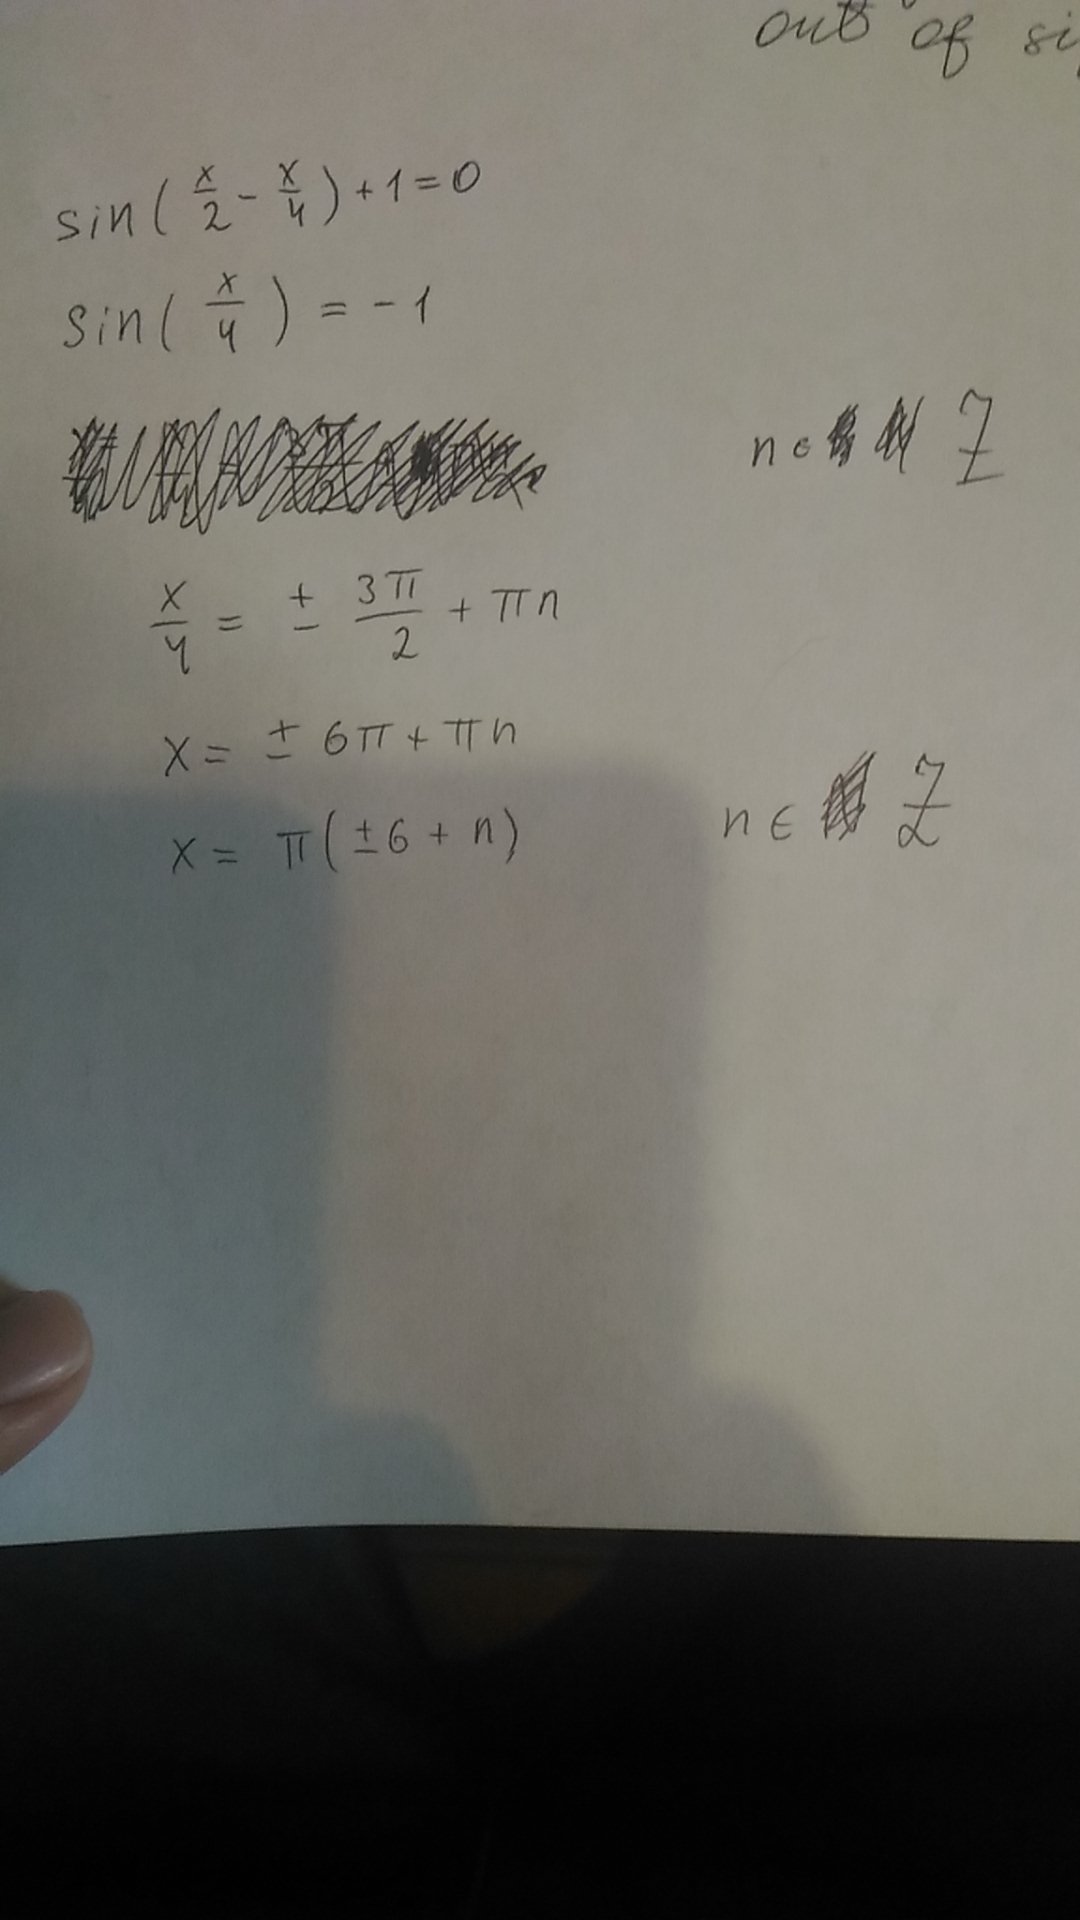 out of
sin( x/2 - x/4 ) + 1 = 0
sin( x/4 ) = -1
n ∈ Z
x/4 = ± 3π/2 + πn
x = ± 6π + πn
x = π( ±6 + n ) n ∈ Z